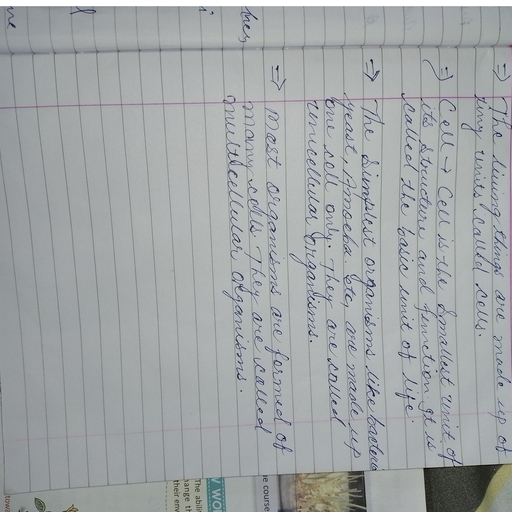 => The living things are made up of
tiny units called cells.
=> Cell → Cell is the smallest unit of
its structure and function. It is
called the basic unit of life.
=> The simplest organisms like bacteria
yeast, Amoeba etc, are made up
one cell only. They are called
unicellular organisms.
=> Most organisms are formed of
many cells. They are called
multicellular organisms.
The abili
their env